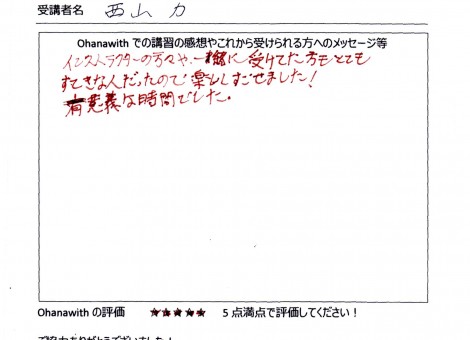 受講者名 西山 力
Ohanawith での講習の感想やこれから受けられる方へのメッセージ等
インストラクターの方々や、一緒に受けてた方もとても
すてきな人だったので楽しくすごせました！
有意義な時間でした。
Ohanawith の評価 ★★★★★ 5 点満点で評価してください！
ご協力ありがとうございました！